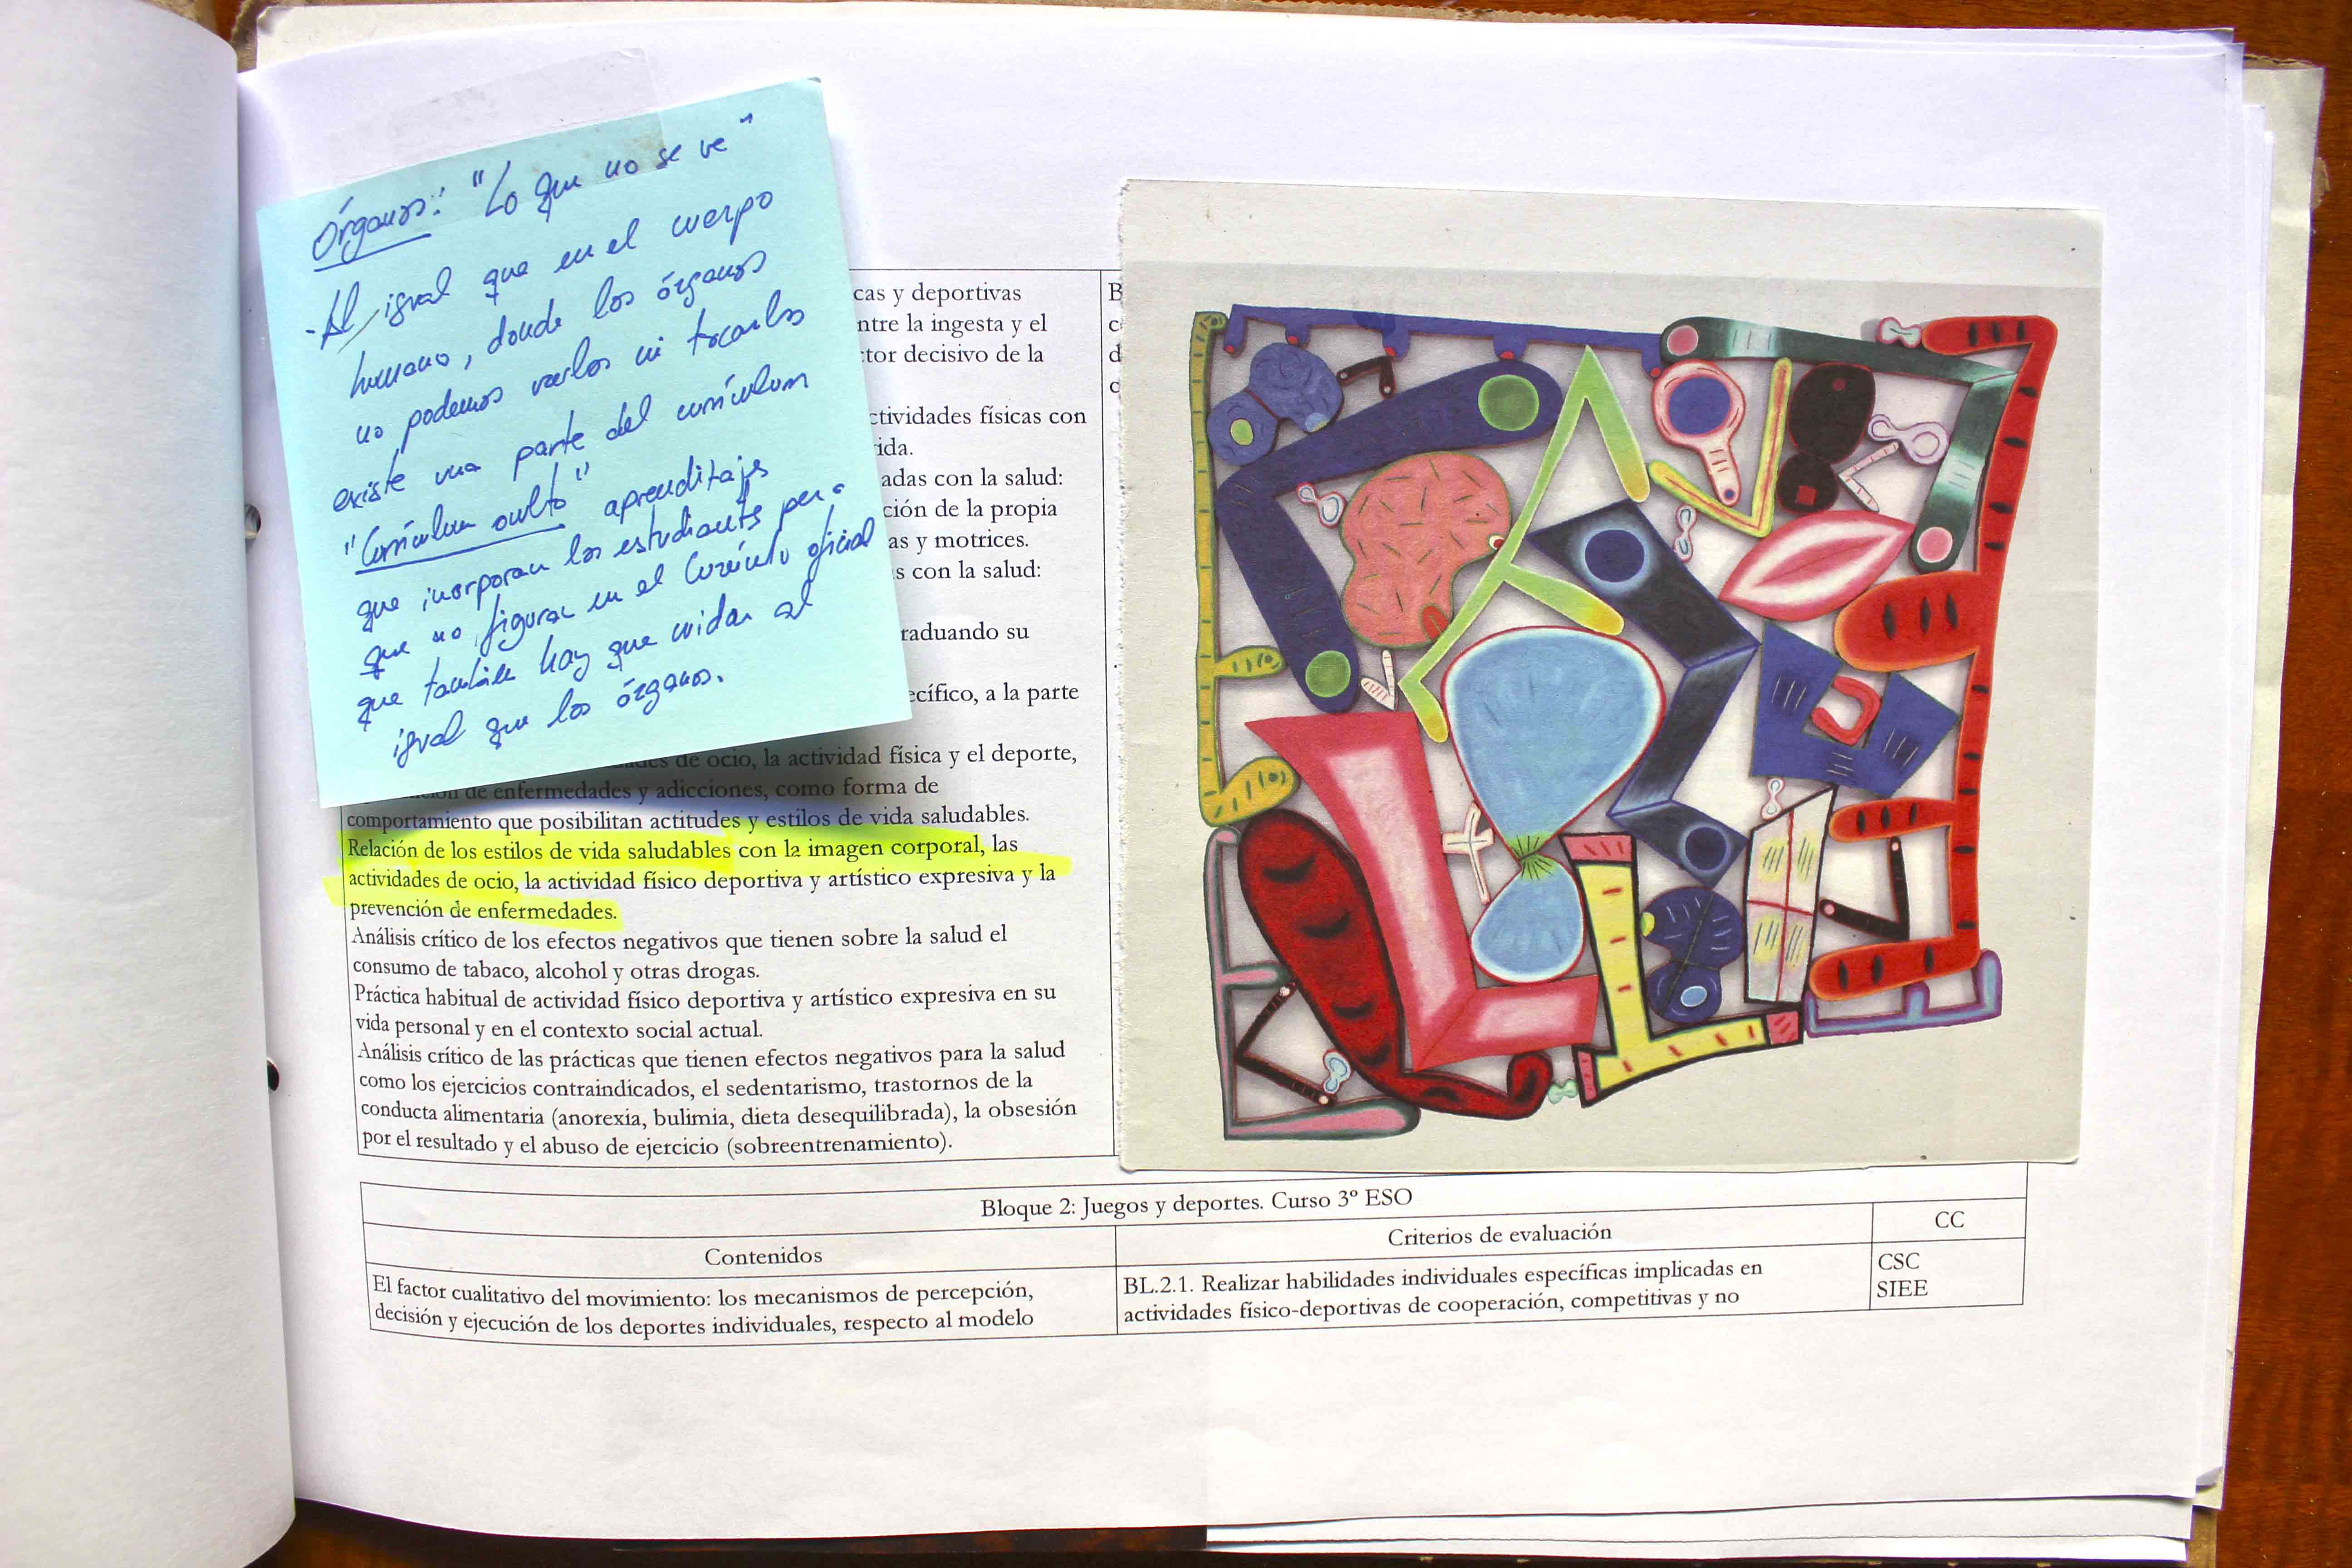 Órganos: "Lo que no se ve"
- Al igual que en el cuerpo
humano, donde los órganos
no podemos verlos ni tocarlos
existe una parte del currículum
"Currículum oculto" aprenditajes
que incorporan los estudiantes pero
que no figuran en el Currículo oficial
que también hay que cuidar al
igual que los órganos.
cas y deportivas
ntre la ingesta y el
tor decisivo de la
ctividades físicas con
ida.
adas con la salud:
ción de la propia
as y motrices.
s con la salud:
raduando su
ecífico, a la parte
de ocio, la actividad física y el deporte,
de enfermedades y adicciones, como forma de
comportamiento que posibilitan actitudes y estilos de vida saludables.
Relación de los estilos de vida saludables con la imagen corporal, las
actividades de ocio, la actividad físico deportiva y artístico expresiva y la
prevención de enfermedades.
Análisis crítico de los efectos negativos que tienen sobre la salud el
consumo de tabaco, alcohol y otras drogas.
Práctica habitual de actividad físico deportiva y artístico expresiva en su
vida personal y en el contexto social actual.
Análisis crítico de las prácticas que tienen efectos negativos para la salud
como los ejercicios contraindicados, el sedentarismo, trastornos de la
conducta alimentaria (anorexia, bulimia, dieta desequilibrada), la obsesión
por el resultado y el abuso de ejercicio (sobreentrenamiento).
Bloque 2: Juegos y deportes. Curso 3º ESO
Contenidos
Criterios de evaluación
CC
El factor cualitativo del movimiento: los mecanismos de percepción,
decisión y ejecución de los deportes individuales, respecto al modelo
BL.2.1. Realizar habilidades individuales específicas implicadas en
actividades físico-deportivas de cooperación, competitivas y no
CSC
SIEE